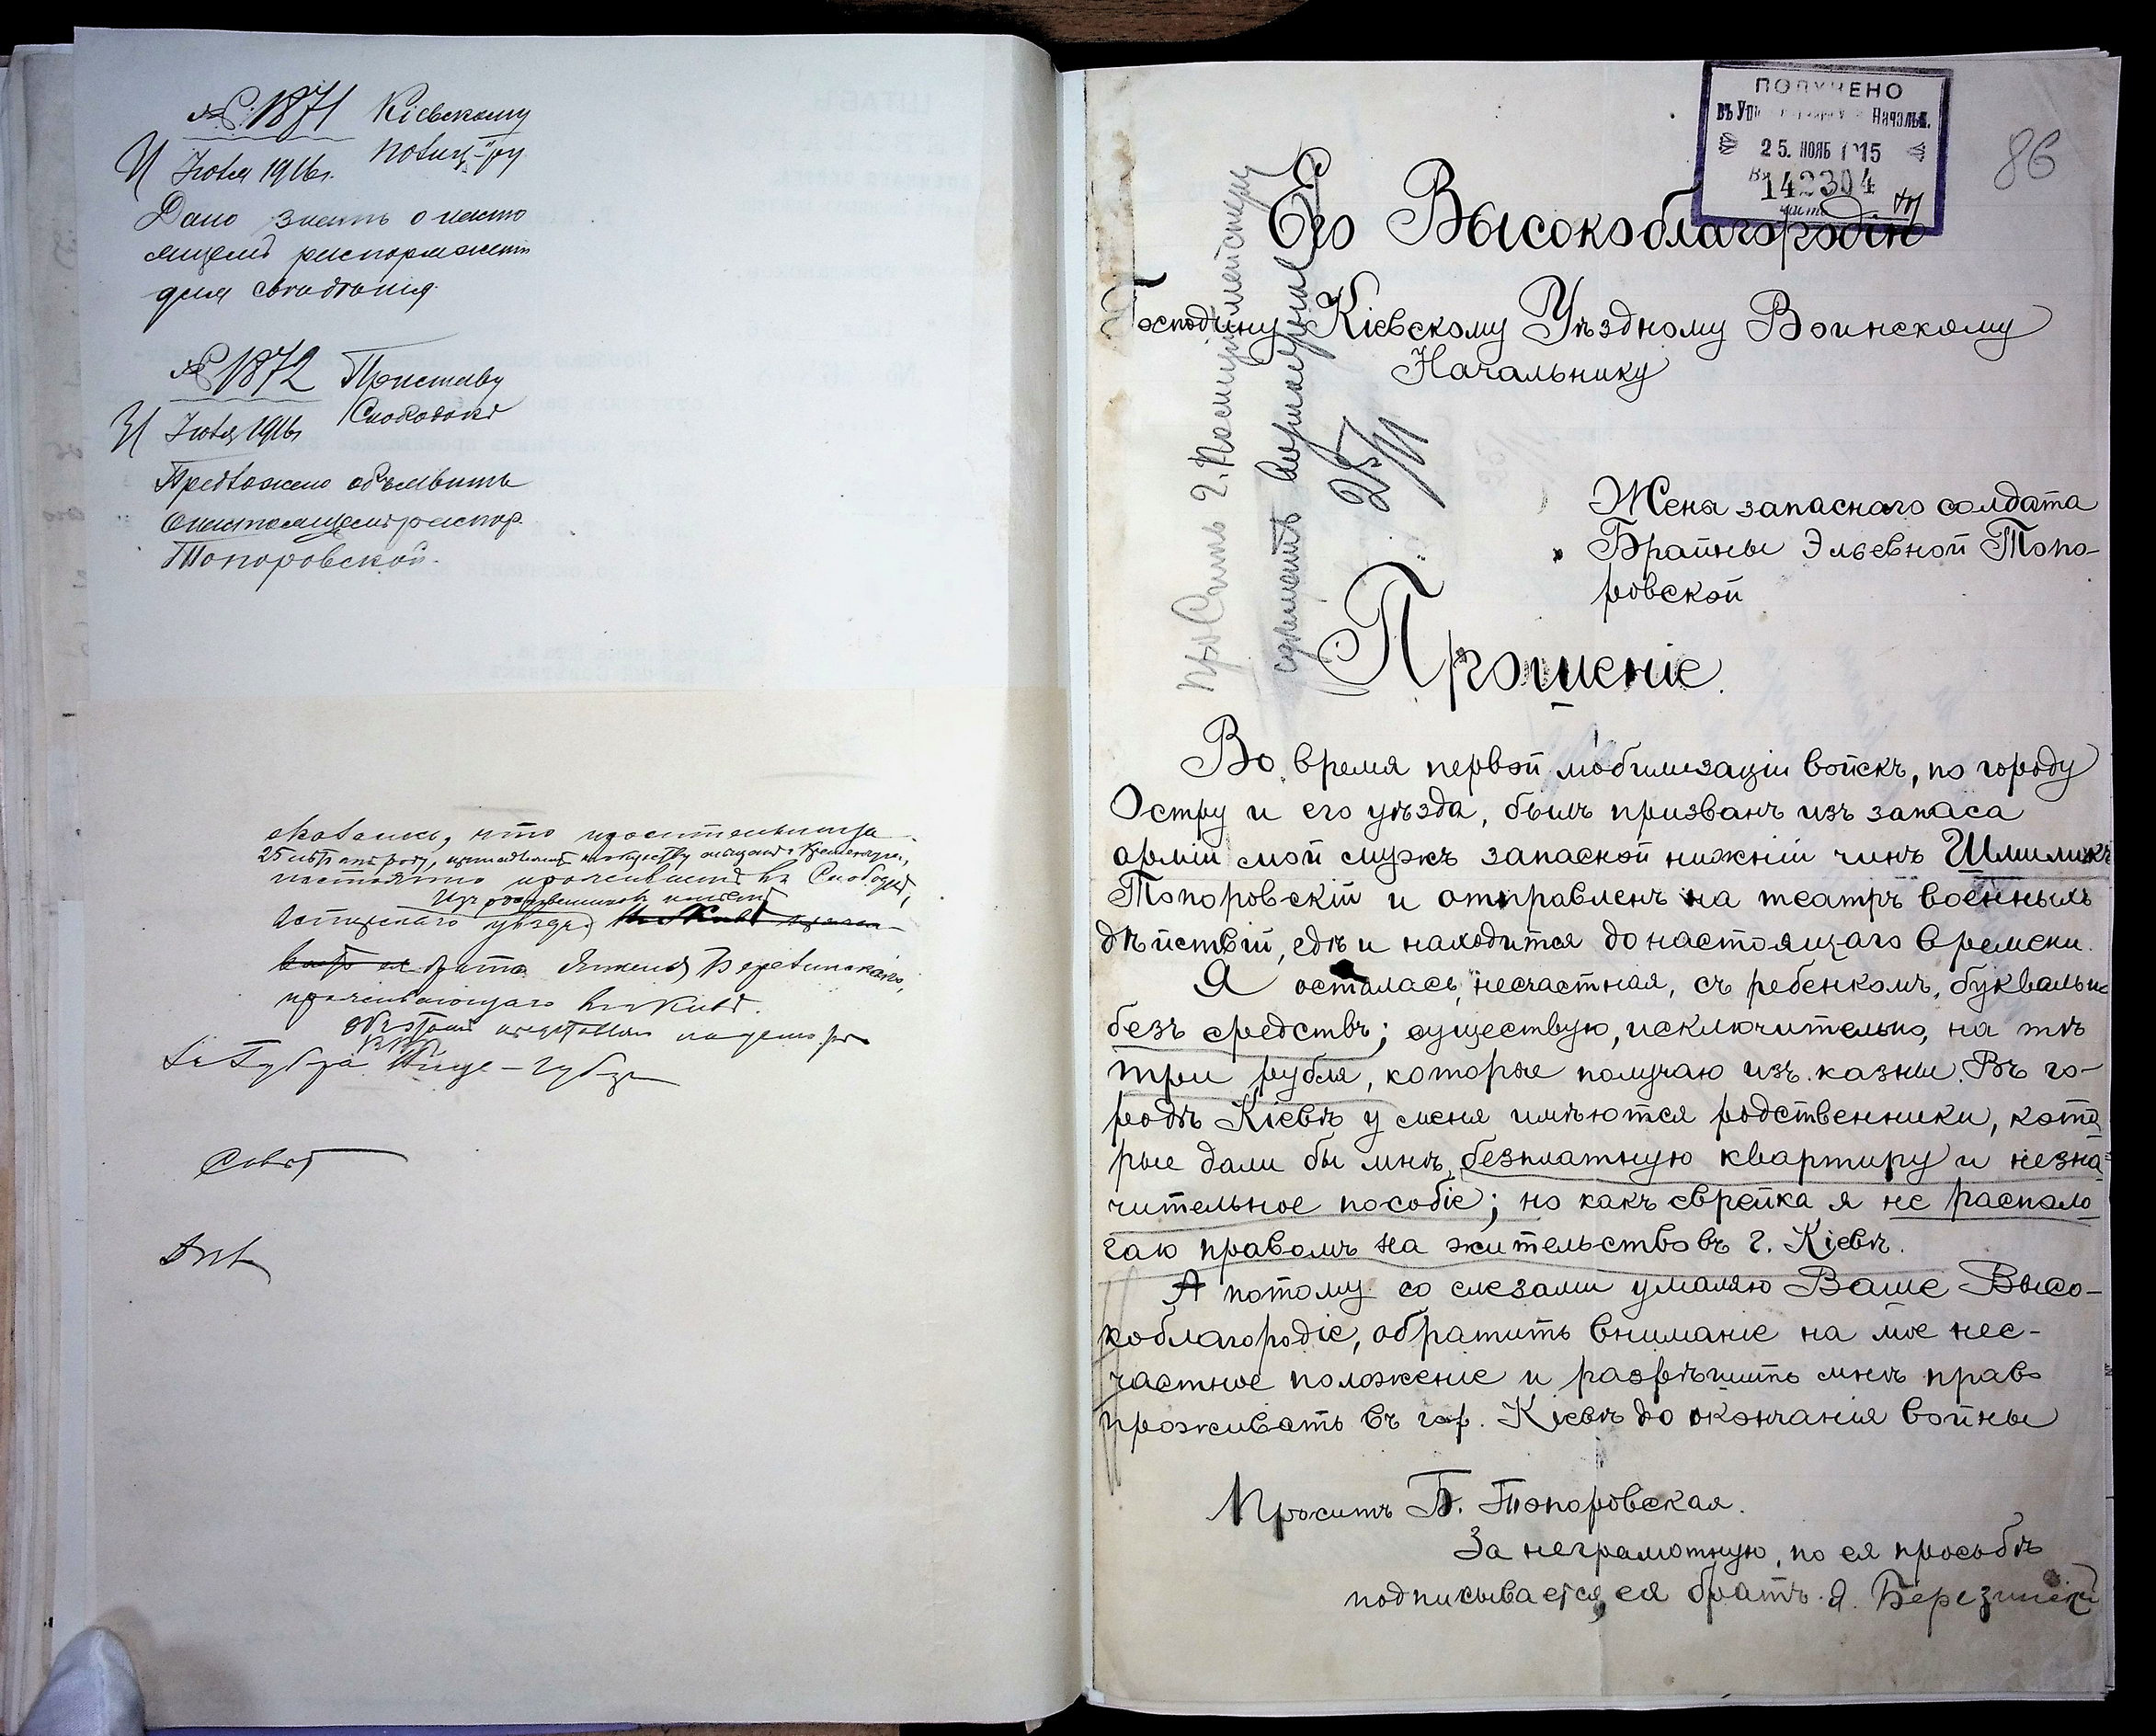 № 1871 Кіевскому
Полиц-ру
31 Іюля 1916г.
Дано знать о насто
ящемъ распоряжен
для свѣдѣнія.
№ 1872 Приставу
Слободки
31 Іюля 1916г
Предложено объявить
о настоящемъ распор.
Топоровской.
оказалось, что просительница
25 лѣтъ отъ роду,
постоянно проживаетъ въ Слободкѣ,
Изъ родственниковъ имѣетъ
Остерскаго уѣзда,
брата Янкеля Березинскаго,
проживающаго въ Кіевѣ.
За Губ-ра Вице-губер
Совѣт
ПОЛУЧЕНО
въ Упр Началь.
25. НОЯБ 1915
Вх 142304
часть
86
Его Высокоблагородію
Господину Кіевскому Уѣздному Воинскому
Начальнику
прос. г. Полицмейстеру
25/XI
Жена запаснаго солдата
Брайны Эльевной Топо-
ровской
Прошеніе.
Во время первой мобилизаціи войскъ, по городу
Остру и его уѣзда, былъ призванъ изъ запаса
арміи мой мужъ запасной нижній чинъ Шмиликъ
Топоровскій и отправленъ на театръ военныхъ
дѣйствій, гдѣ и находится до настоящаго времени.
Я осталась, несчастная, съ ребенкомъ, буквально
безъ средствъ; существую, исключительно, на тѣ
три рубля, которые получаю изъ казны. Въ го-
родѣ Кіевѣ у меня имѣются родственники, кото
рые дали бы мнѣ, безплатную квартиру и незна-
чительное пособіе; но какъ еврейка я не распола
гаю правомъ на жительство въ г. Кіевѣ.
А потому со слезами умаляю Ваше Высо-
коблагородіе, обратить вниманіе на мое нес-
частное положеніе и разрѣшить мнѣ право
проживать въ гор. Кіевѣ до окончанія войны
Проситъ Б. Топоровская.
За неграмотную, по ея просьбѣ
подписывается, ея братъ Я. Березинскій